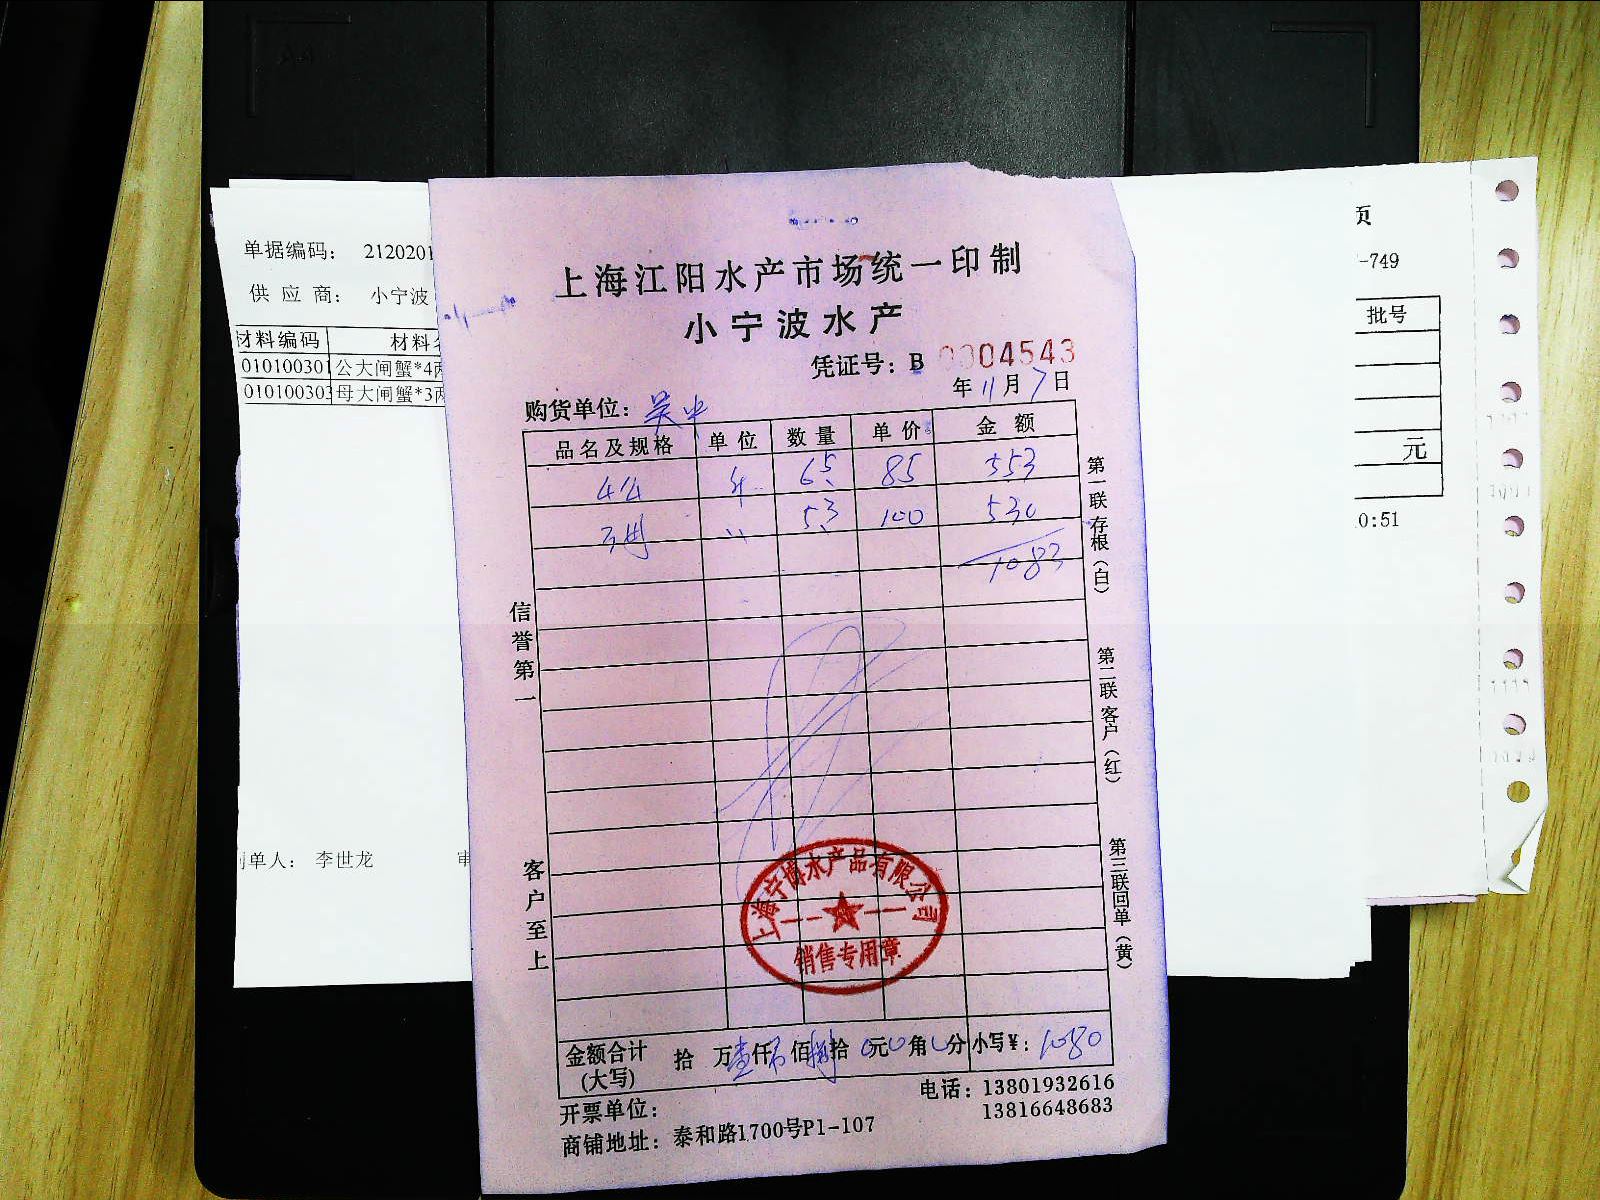 单据编码： 2120201
供 应 商： 小宁波
材料编码 材料
010100301 公大闸蟹*4两
010100303 母大闸蟹*3两
制单人： 李世龙 审
上海江阳水产市场统一印制
小宁波水产
凭证号：B 0004543
年 11 月 7 日
购货单位：
品名及规格 单位 数量 单价 金额
65 85 553
53 100 530
1083
信誉第一
客户至上
第一联 存根（白）
第二联 客户（红）
第三联 回单（黄）
上海宁博水产品有限公司
销售专用章
金额合计 拾 万 壹 仟 佰 捌 拾 0 元 0 角 0 分 小写¥： 1080
(大写)
开票单位：
电话：13801932616
13816648683
商铺地址：泰和路1700号P1-107
页
-749
批号
元
0:51